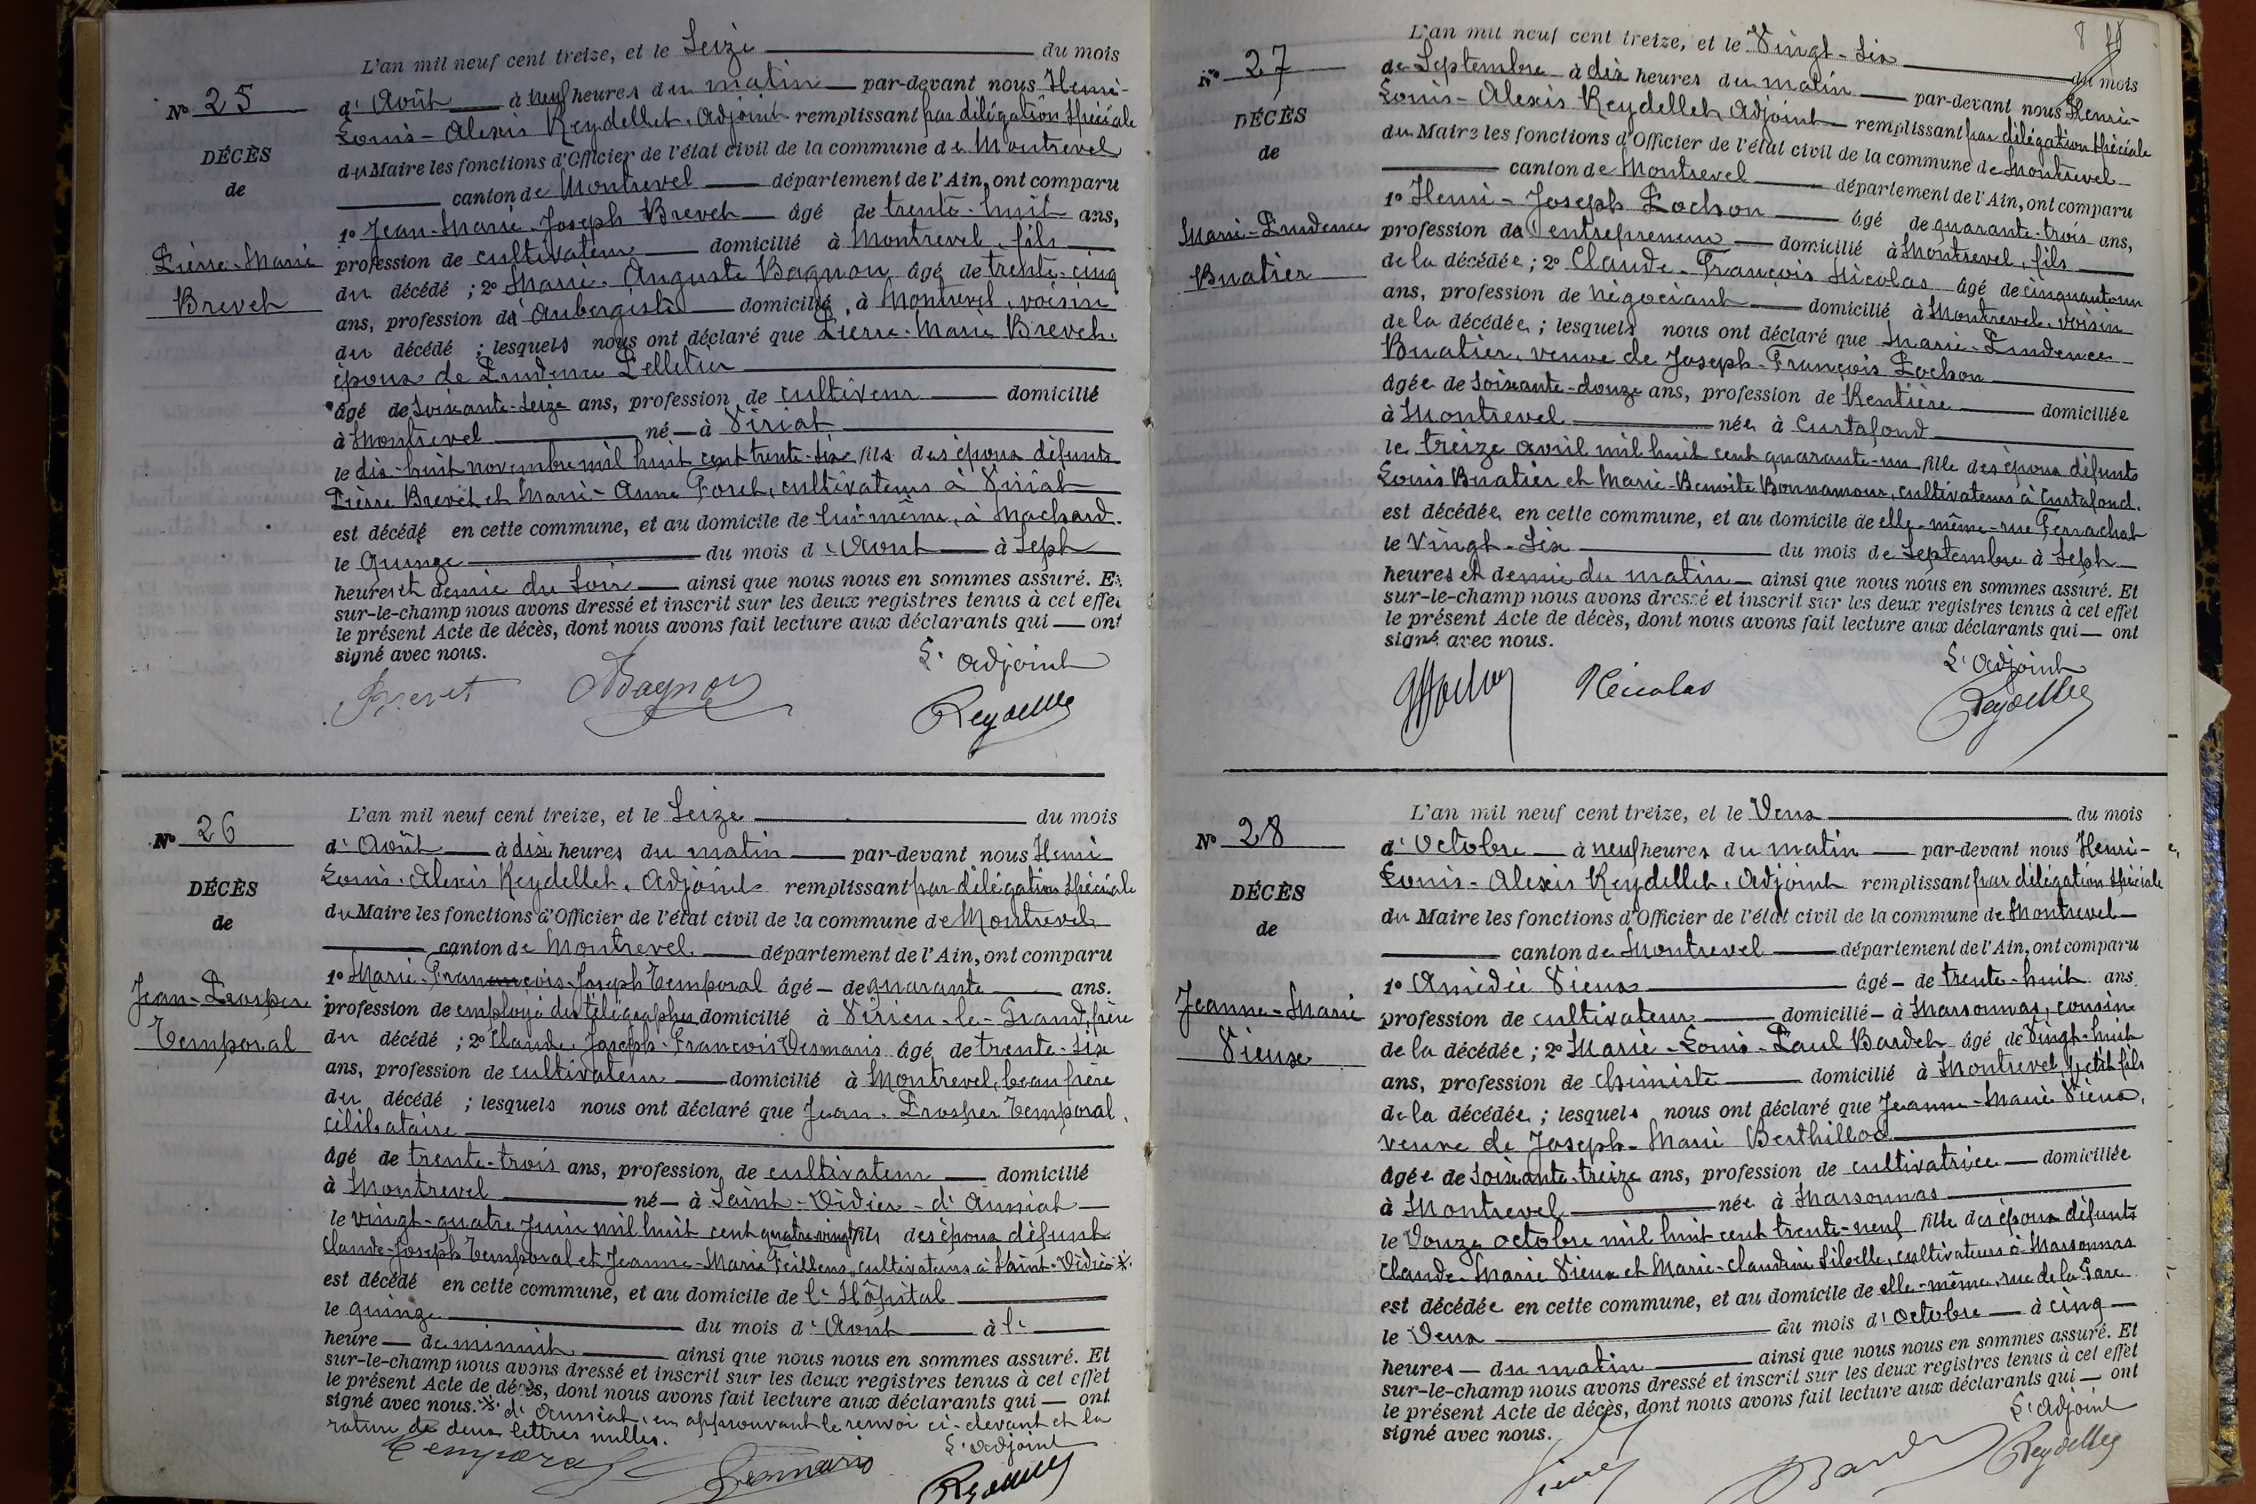 L'an mil neuf cent treize, et le Seize du mois
d'Août à neuf heures du matin par-devant nous Henri-
Louis-Alexis Reydellet, Adjoint remplissant par délégation spéciale
du Maire les fonctions d'Officier de l'état civil de la commune de Montrevel
canton de Montrevel département de l'Ain, ont comparu
1º Jean-Marie-Joseph Brevet âgé de trente-huit ans,
profession de cultivateur domicilié à Montrevel, fils
du décédé ; 2º Marie-Auguste Bagnon âgé de trente-cinq
ans, profession d'Aubergiste domicilié à Montrevel, voisin
du décédé ; lesquels nous ont déclaré que Pierre-Marie Brevet,
époux de Prudence Pelletier
âgé de soixante-seize ans, profession de cultiveur domicilié
à Montrevel né à Viriat
le dix-huit novembre mil huit cent trente-six fils des époux défunts
Pierre Brevet et Marie-Anne Foret, cultivateurs à Viriat
est décédé en cette commune, et au domicile de lui-même, à Machard.
le Quinze du mois d'Août à Sept
heures et demie du soir ainsi que nous nous en sommes assuré. Et
sur-le-champ nous avons dressé et inscrit sur les deux registres tenus à cet effet
le présent Acte de décès, dont nous avons fait lecture aux déclarants qui ont
signé avec nous.
L'adjoint
Brevet Bagnon Reydellet
Nº 25
DÉCÈS
de
Pierre-Marie
Brevet
L'an mil neuf cent treize, et le Seize du mois
d'Août à dix heures du matin par-devant nous Henri
Louis-Alexis Reydellet, Adjoint remplissant par délégation spéciale
du Maire les fonctions d'Officier de l'état civil de la commune de Montrevel
canton de Montrevel département de l'Ain, ont comparu
1º Marie-François-Joseph Temporal âgé de quarante ans.
profession de employé des télégraphes domicilié à Virieu-le-Grand, frère
du décédé ; 2º Claude-Joseph-François Desmaris âgé de trente-six
ans, profession de cultivateur domicilié à Montrevel, beau frère
du décédé ; lesquels nous ont déclaré que Jean-Prosper Temporal,
célibataire
âgé de trente-trois ans, profession de cultivateur domicilié
à Montrevel né à Saint-Didier-d'Aussiat
le vingt-quatre Juin mil huit cent quatre-vingt fils des époux défunts
Claude-Joseph Temporal et Jeanne-Marie Feillens, cultivateurs à Saint-Didier ※
est décédé en cette commune, et au domicile de l'Hôpital
le quinze du mois d'Août à l'
heure de minuit ainsi que nous nous en sommes assuré. Et
sur-le-champ nous avons dressé et inscrit sur les deux registres tenus à cet effet
le présent Acte de décès, dont nous avons fait lecture aux déclarants qui ont
signé avec nous. ※ d'Aussiat, en approuvant le renvoi ci-devant et la
rature de deux lettres nulles.
L'adjoint
Temporal Desmaris Reydellet
Nº 26
DÉCÈS
de
Jean-Prosper
Temporal
8
L'an mil neuf cent treize, et le Vingt-Six du mois
de Septembre à dix heures du matin par-devant nous Henri-
Louis-Alexis Reydellet, Adjoint remplissant par délégation spéciale
du Maire les fonctions d'Officier de l'état civil de la commune de Montrevel
canton de Montrevel département de l'Ain, ont comparu
1º Henri-Joseph Pochon âgé de quarante-trois ans,
profession d'entrepreneur domicilié à Montrevel, fils
de la décédée ; 2º Claude-François Nicolas âgé de cinquante un
ans, profession de négociant domicilié à Montrevel, voisin
de la décédée ; lesquels nous ont déclaré que Marie-Prudence
Buatier, veuve de Joseph-François Pochon
âgée de soixante-douze ans, profession de Rentière domiciliée
à Montrevel née à Curtafond
le treize avril mil huit cent quarante-un fille des époux défunts
Louis Buatier et Marie-Benoite Bonnamour, cultivateurs à Curtafond.
est décédée en cette commune, et au domicile de elle-même-rue Ferrachat
le Vingt-Six du mois de Septembre à Sept
heures et demie du matin ainsi que nous nous en sommes assuré. Et
sur-le-champ nous avons dressé et inscrit sur les deux registres tenus à cet effet
le présent Acte de décès, dont nous avons fait lecture aux déclarants qui ont
signé avec nous.
L'adjoint
Pochon Nicolas Reydellet
Nº 27
DÉCÈS
de
Marie-Prudence
Buatier
L'an mil neuf cent treize, et le Deux du mois
d'Octobre à neuf heures du matin par-devant nous Henri-
Louis-Alexis Reydellet, Adjoint remplissant par délégation spéciale
du Maire les fonctions d'Officier de l'état civil de la commune de Montrevel
canton de Montrevel département de l'Ain, ont comparu
1º Amédée Vieux âgé de trente-huit ans
profession de cultivateur domicilié à Marsonnas, cousin
de la décédée ; 2º Marie-Louis-Paul Bardet âgé de vingt-huit
ans, profession de Chimiste domicilié à Montrevel, petit fils
de la décédée ; lesquels nous ont déclaré que Jeanne-Marie Vieux,
veuve de Joseph-Marie Berthillod
âgée de soixante-treize ans, profession de cultivatrice domiciliée
à Montrevel née à Marsonnas
le Douze octobre mil huit cent trente-neuf fille des époux défunts
Claude-Marie Vieux et Marie-Claudine Sibelle, cultivateurs à Marsonnas
est décédée en cette commune, et au domicile de elle-même, rue de la Gare
le Deux du mois d'Octobre à cinq
heures du matin ainsi que nous nous en sommes assuré. Et
sur-le-champ nous avons dressé et inscrit sur les deux registres tenus à cet effet
le présent Acte de décès, dont nous avons fait lecture aux déclarants qui ont
signé avec nous.
L'adjoint
Vieux Bardet Reydellet
Nº 28
DÉCÈS
de
Jeanne-Marie
Vieux